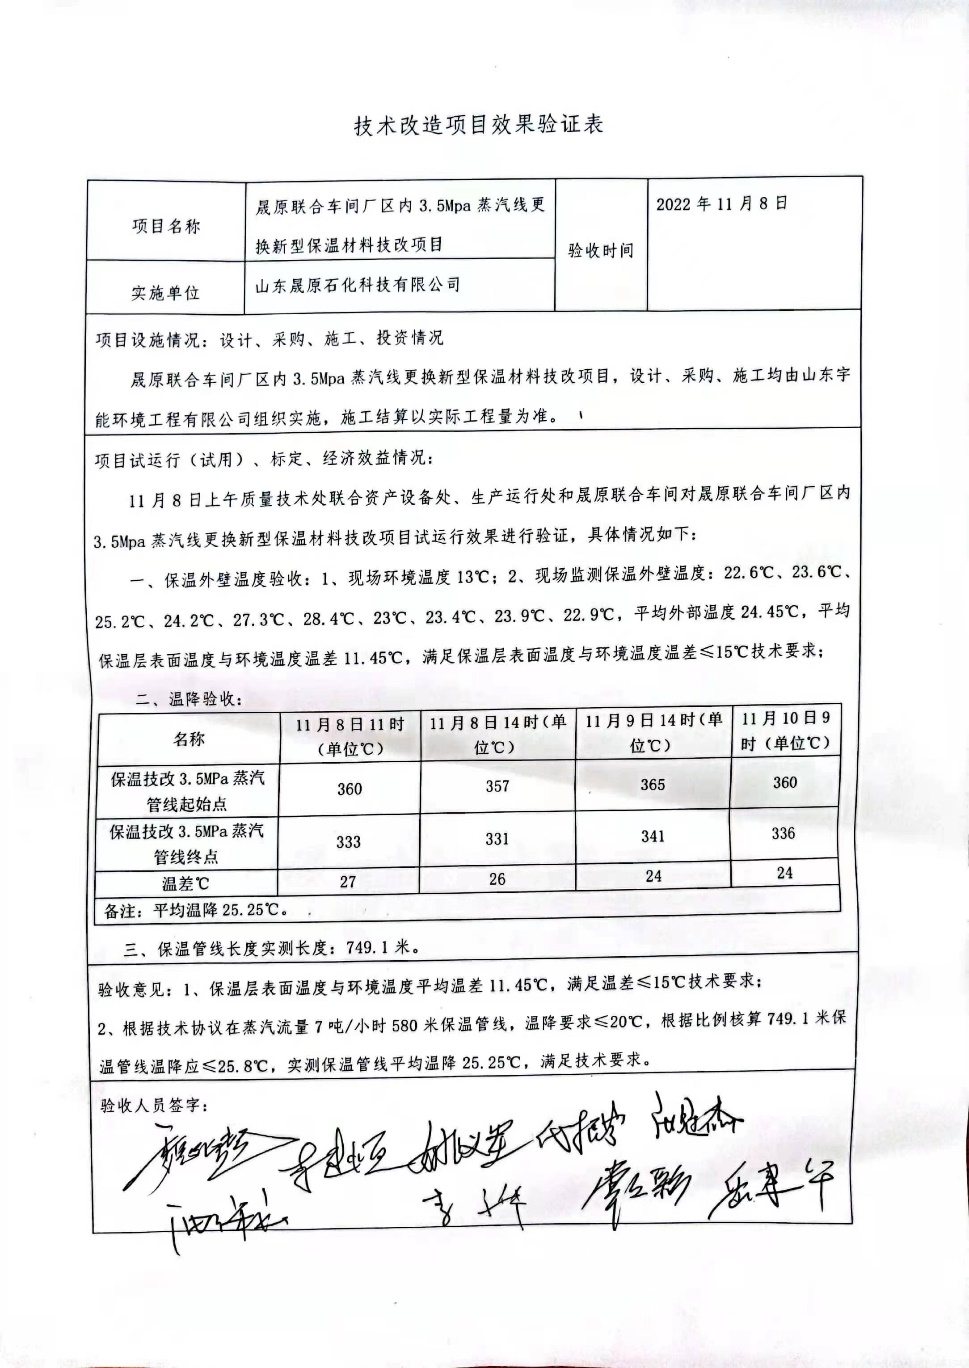 技术改造项目效果验证表
项目名称
晟原联合车间厂区内 3.5Mpa 蒸汽线更
换新型保温材料技改项目
验收时间
2022 年 11 月 8 日
实施单位
山东晟原石化科技有限公司
项目设施情况：设计、采购、施工、投资情况
晟原联合车间厂区内 3.5Mpa 蒸汽线更换新型保温材料技改项目，设计、采购、施工均由山东宇
能环境工程有限公司组织实施，施工结算以实际工程量为准。
项目试运行（试用）、标定、经济效益情况：
11 月 8 日上午质量技术处联合资产设备处、生产运行处和晟原联合车间对晟原联合车间厂区内
3.5Mpa 蒸汽线更换新型保温材料技改项目试运行效果进行验证，具体情况如下：
一、保温外壁温度验收：1、现场环境温度 13℃；2、现场监测保温外壁温度：22.6℃、23.6℃、
25.2℃、24.2℃、27.3℃、28.4℃、23℃、23.4℃、23.9℃、22.9℃，平均外部温度 24.45℃，平均
保温层表面温度与环境温度温差 11.45℃，满足保温层表面温度与环境温度温差≤15℃技术要求；
二、温降验收：
名称
11 月 8 日 11 时
（单位℃）
11 月 8 日 14 时（单
位℃）
11 月 9 日 14 时（单
位℃）
11 月 10 日 9
时（单位℃）
保温技改 3.5MPa 蒸汽
管线起始点
360
357
365
360
保温技改 3.5MPa 蒸汽
管线终点
333
331
341
336
温差℃
27
26
24
24
备注：平均温降 25.25℃。
三、保温管线长度实测长度：749.1 米。
验收意见：1、保温层表面温度与环境温度平均温差 11.45℃，满足温差≤15℃技术要求；
2、根据技术协议在蒸汽流量 7 吨/小时 580 米保温管线，温降要求≤20℃，根据比例核算 749.1 米保
温管线温降应≤25.8℃，实测保温管线平均温降 25.25℃，满足技术要求。
验收人员签字：